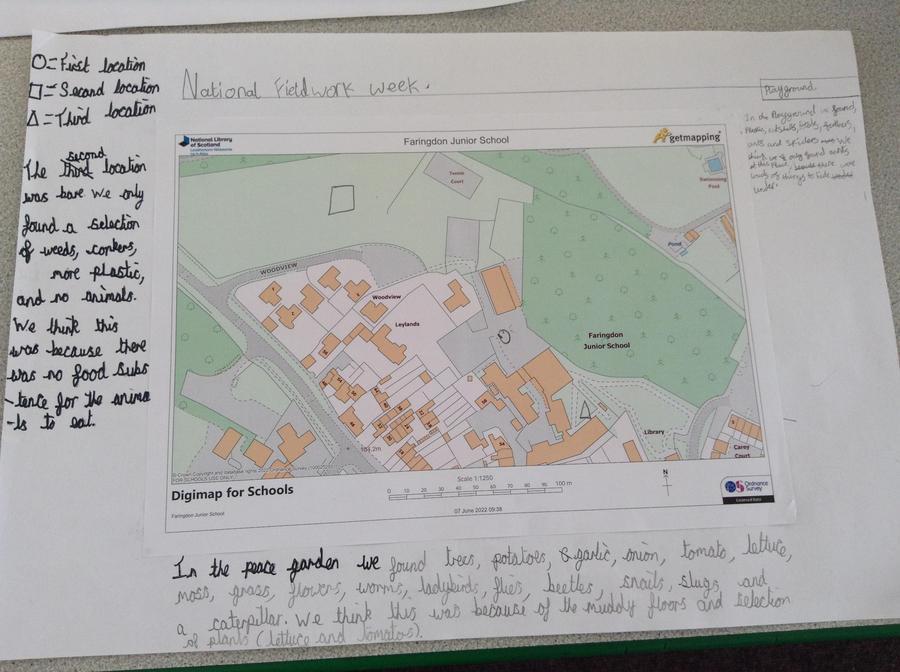 O = First location
□ = Second location
△ = Third location
National Fieldwork week.
Playground
In the Playground we found,
Plastic,
ants and spiders
think we only found ants
at this place,
lots of things to hide
under.
The third second location
was bare we only
found a selection
of weeds, conkers,
more plastic,
and no animals.
We think this
was because there
was no good subs
-tence for the anima
-ls to eat.
National Library
of Scotland
Faringdon Junior School
getmapping
Tennis
Court
Swimming
Pool
Pond
WOODVIEW
Woodview
Leylands
Faringdon
Junior School
Library
Carey
Court
104.2m
© Crown Copyright and database rights 2022 Ordnance Survey
FOR SCHOOLS USE ONLY
Digimap for Schools
Scale 1:1250
0 10 20 30 40 50 60 70 80 90 100 m
N
Ordnance
Survey
Faringdon Junior School
07 June 2022 09:38
In the peace garden we found trees, potatoes, & garlic, onion, tomato, lettuce,
moss, grass, flowers, worms, ladybirds, flies, beetles, snails, slugs and
a caterpillar. We think this was because of the muddy floors and selection
of plants (lettuce and tomatos).